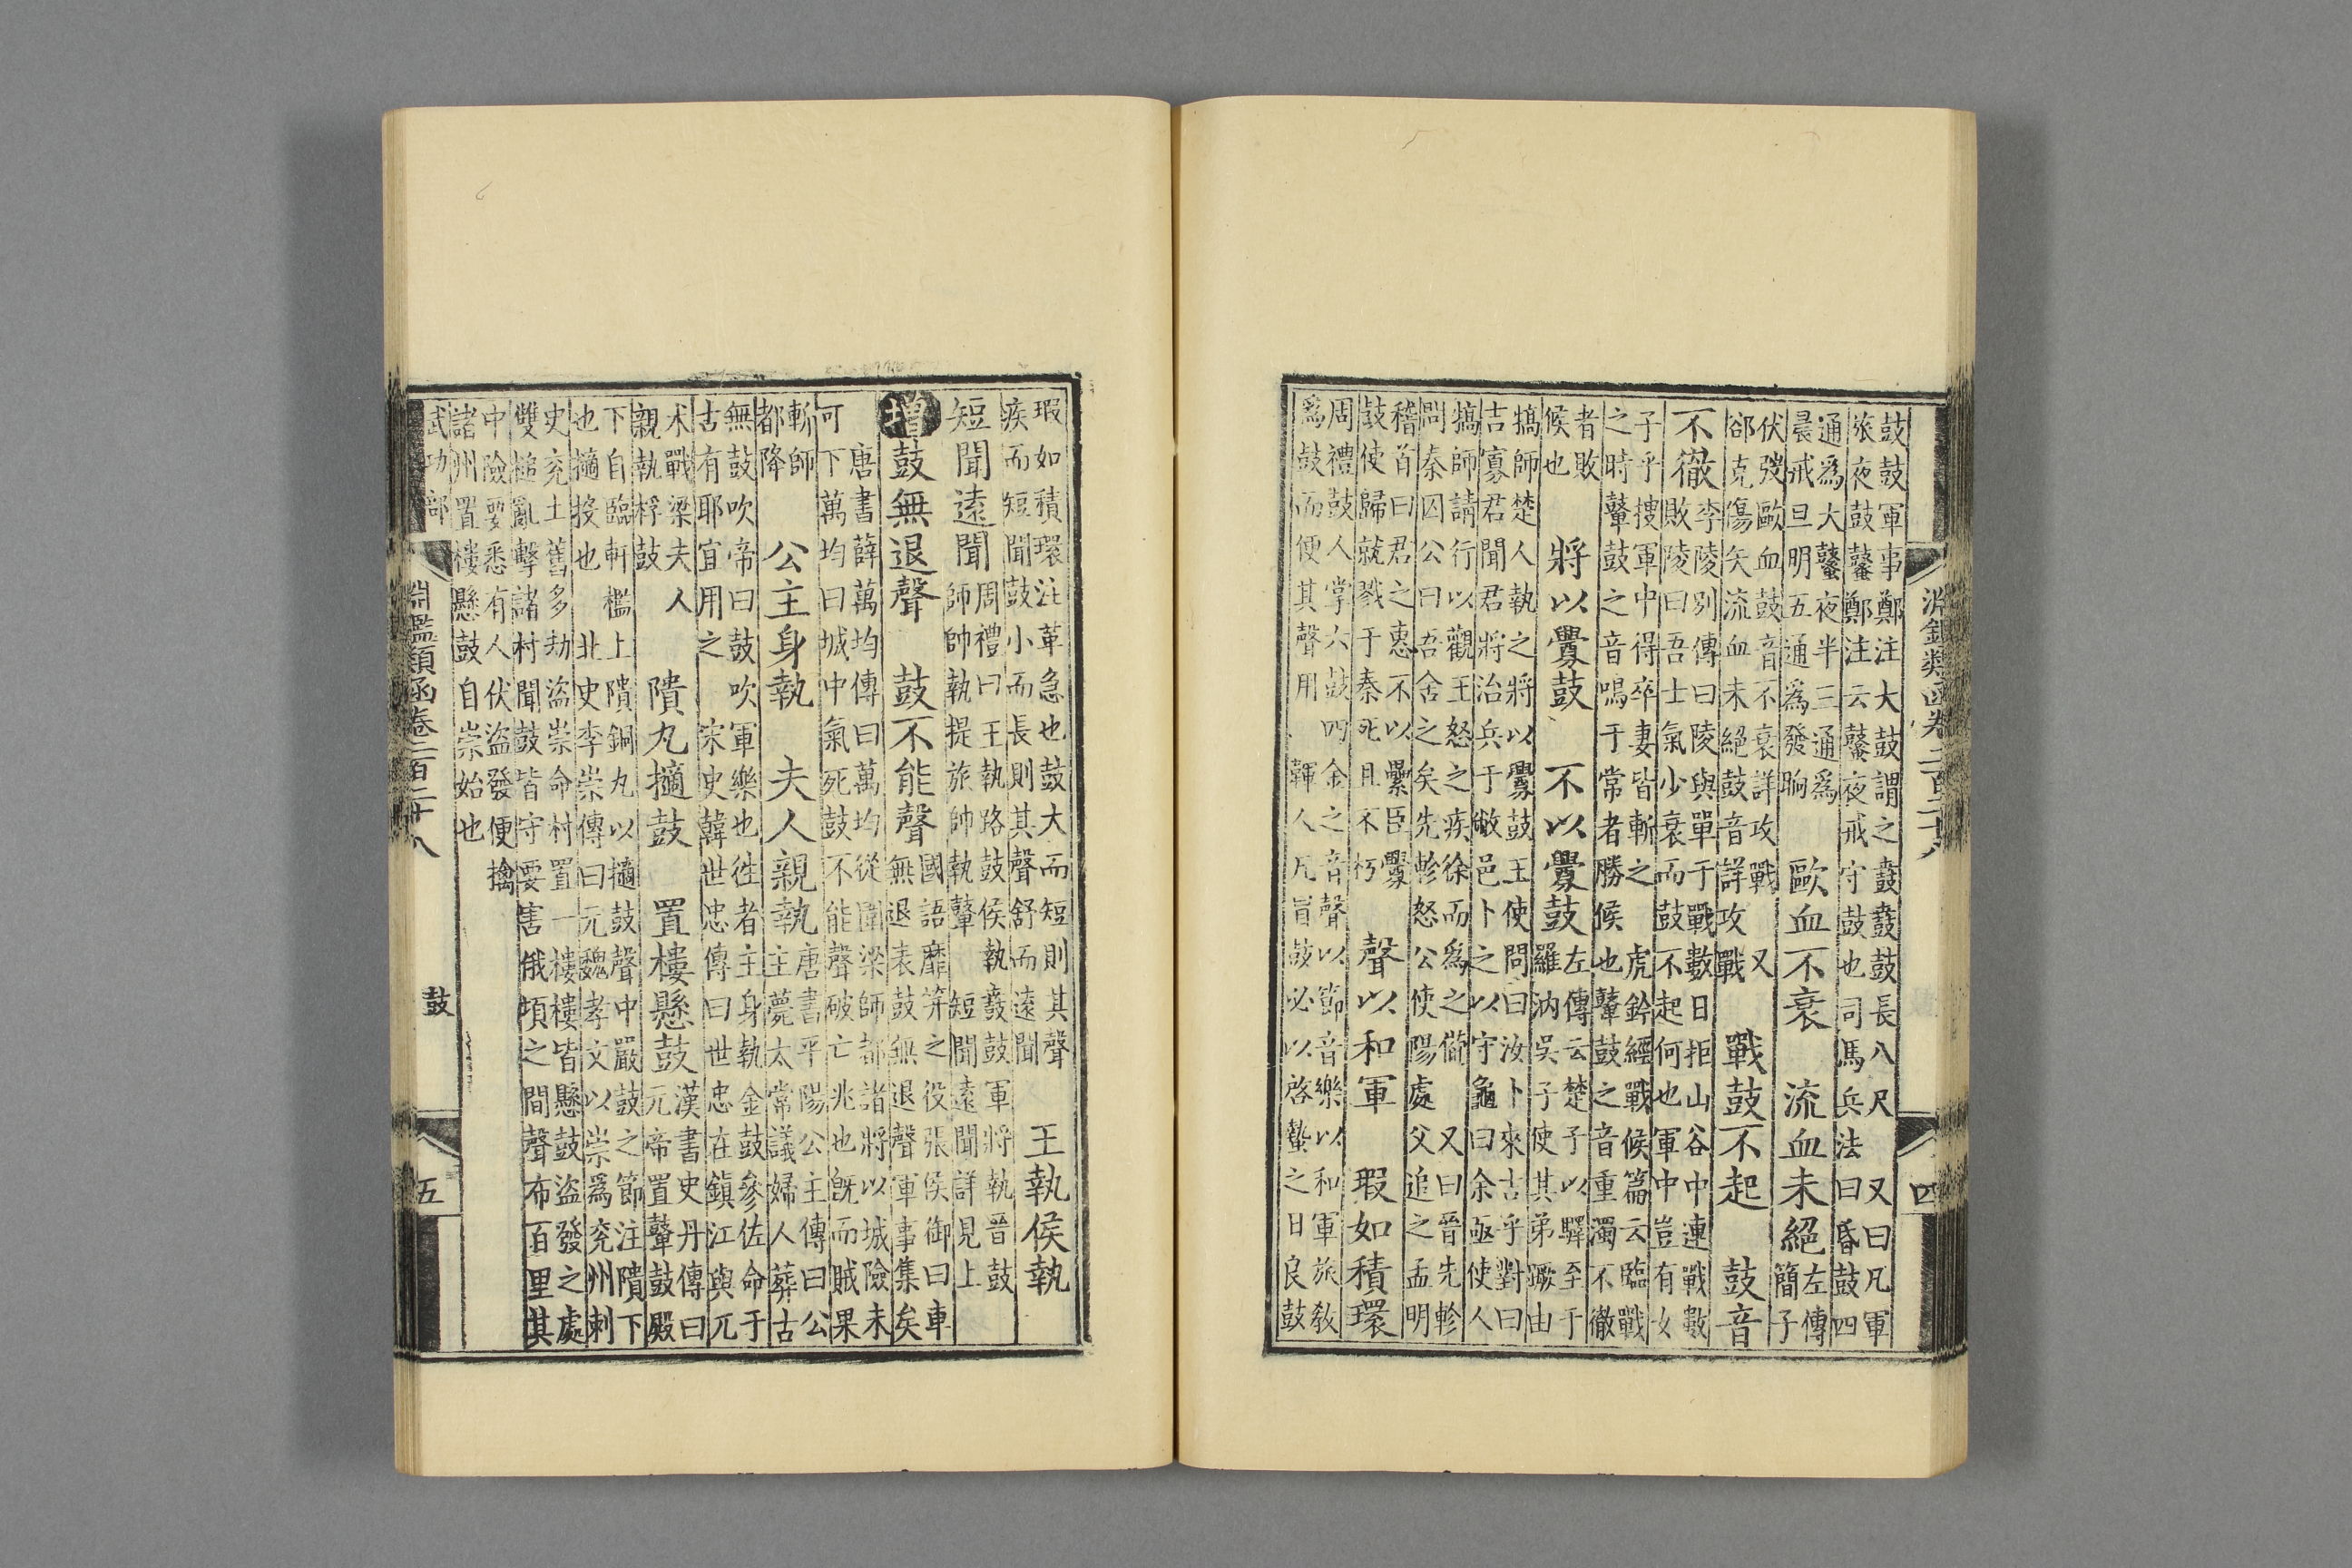 淵鑑類函卷二百二十八
四
鼓鼓軍事鄭注大鼓謂之鼖鼖鼓長八尺　又曰凡軍
旅夜鼓鼜鄭注云鼜夜戒守鼓也司馬兵法曰昏鼓四
通爲大鼜夜半三通爲
晨戒旦明五通爲發昫
歐血不衰　流血未絕
左傳
簡子
伏弢歐血鼓音不衰詳攻戰　又
郤克傷矢流血未絕鼓音詳攻戰
戰鼓不起　鼓音
不徹
李陵别傳曰陵與單于戰數日拒山谷中連戰數
敗陵曰吾士氣少衰而鼓不起何也軍中豈有女
子乎搜軍中得卒妻皆斬之　虎鈐經戰候篇云臨戰
之時鼙鼓之音鳴于常者勝候也鼙鼓之音重濁不徹
者敗
候也
將以釁鼓　不以釁鼓
左傳云楚子以驛至于
羅汭吳子使其弟蹶由
犒師楚人執之將以釁鼓王使問曰汝卜來吉乎對曰
吉寡君聞君將治兵于敝邑卜之以守龜曰余亟使人
犒師請行以觀王怒之疾徐而爲之備　又曰晉先軫
問秦囚公曰吾舍之矣先軫怒公使陽處父追之孟明
稽首曰君之惠不以纍臣釁
鼓使歸就戮于秦死且不朽
聲以和軍　瑕如積環
周禮鼓人掌六鼓四金之音聲以節音樂以和軍旅敎
爲鼓而便其聲用　韗人凡冒鼓必以啓蟄之日良鼓
瑕如積環注革急也鼓大而短則其聲
疾而短聞鼓小而長則其聲舒而遠聞
王執侯執
短聞遠聞
周禮曰王執路鼓侯執鼖鼓軍將執晉鼓
師帥執提旅帥執鼙　短聞遠聞詳見上
增鼓無退聲　鼓不能聲
國語靡筓之役張侯御曰車
無退表鼓無退聲軍事集矣
唐書薛萬均傳曰萬均從圍梁師都諸將以城險未
可下萬均曰城中氣死鼓不能聲破亡兆也旣而賊果
斬師
都降
公主身執　夫人親執
唐書平陽公主傳曰公
主薨太常議婦人葬古
無鼓吹帝曰鼓吹軍樂也徃者主身執金鼓參佐命于
古有耶宜用之　宋史韓世忠傳曰世忠在鎭江與兀
术戰梁夫人
親執桴鼓
隤丸擿鼓　置樓懸鼓
漢書史丹傳曰
元帝置鼙鼓殿
下自臨軒檻上隤銅丸以擿鼓聲中嚴鼓之節注隤下
也擿投也　北史李崇傳曰元魏孝文以崇爲兖州刺
史兖土舊多劫盜崇命村置一樓樓皆懸鼓盜發之處
雙槌亂擊諸村聞鼓皆守要害俄頃之間聲布百里其
中險要悉有人伏盜發便擒
諸州置樓懸鼓自崇始也
武功部
淵鑑類函卷二百二十八
鼓
五